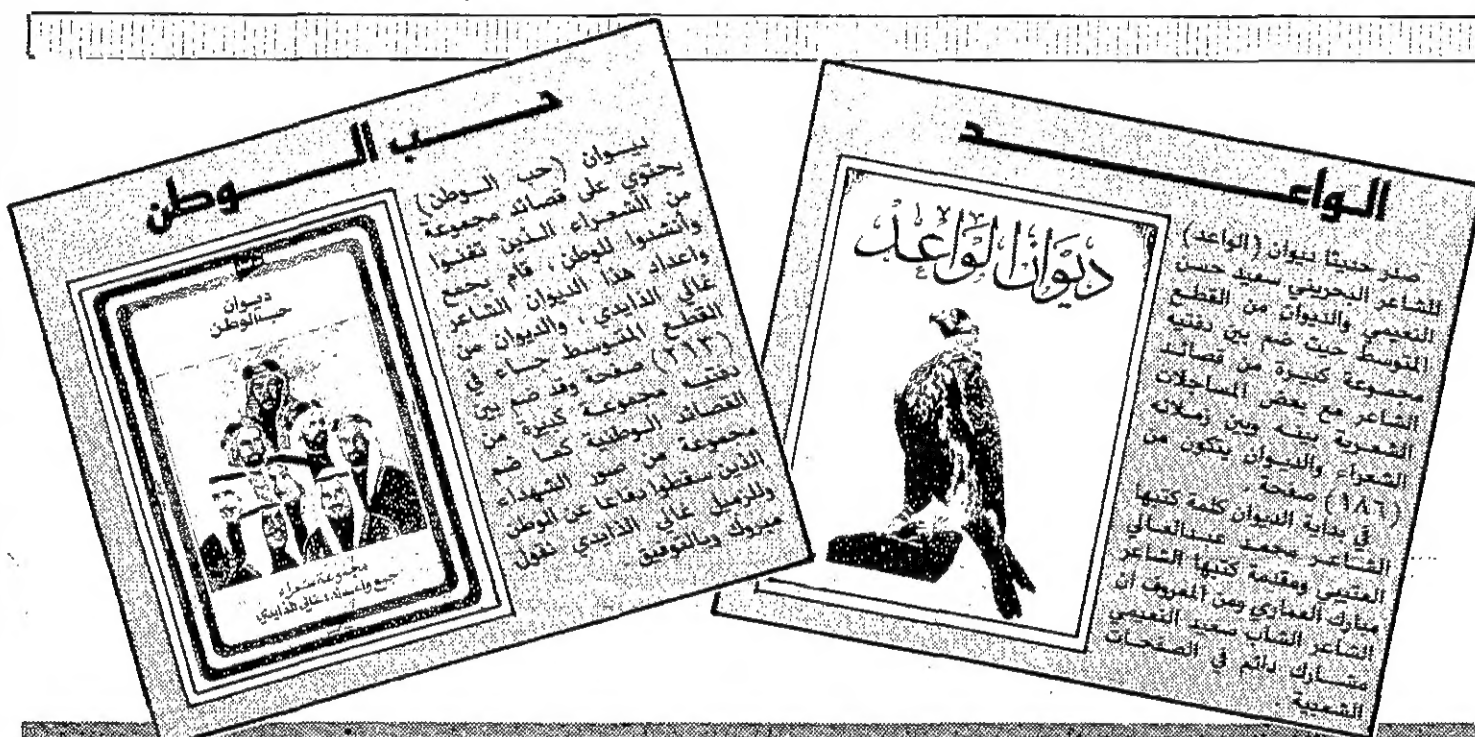 الواعد
ديوان الواعد
صدر حديثا ديوان (الواعد)
للشاعر البحريني سعيد حسن
النعيمي والديوان من القطع
المتوسط حيث ضم بين دفتيه
مجموعة كبيرة من قصائد
الشاعر مع بعض المساجلات
الشعرية بينه وبين زملائه
الشعراء والديوان يتكون من
(١٨٦) صفحة .
في بداية الديوان كلمة كتبها
الشاعر محمد عبدالعالي
العتيبي ومقدمة كتبها الشاعر
مبارك العماري ومن المعروف أن
الشاعر الشاب سعيد النعيمي
مشارك دائم في الصفحات
الشعبية .
حب الوطن
ديوان (حب الوطن)
يحتوي على قصائد مجموعة
من الشعراء الذين تغنوا
وأنشدوا للوطن ، قام بجمع
واعداد هذا الديوان الشاعر
غالي الذايدي ، والديوان من
القطع المتوسط جاء في
(٢١٣) صفحة وقد ضم بين
دفتيه مجموعة كبيرة من
القصائد الوطنية كما ضم
مجموعة من صور الشهداء
الذين سقطوا دفاعا عن الوطن
وللزميل غالي الذايدي نقول
مبروك وبالتوفيق
ديوان
حب الوطن
مجموعة شعراء
جمع واعداد غالي الذايدي